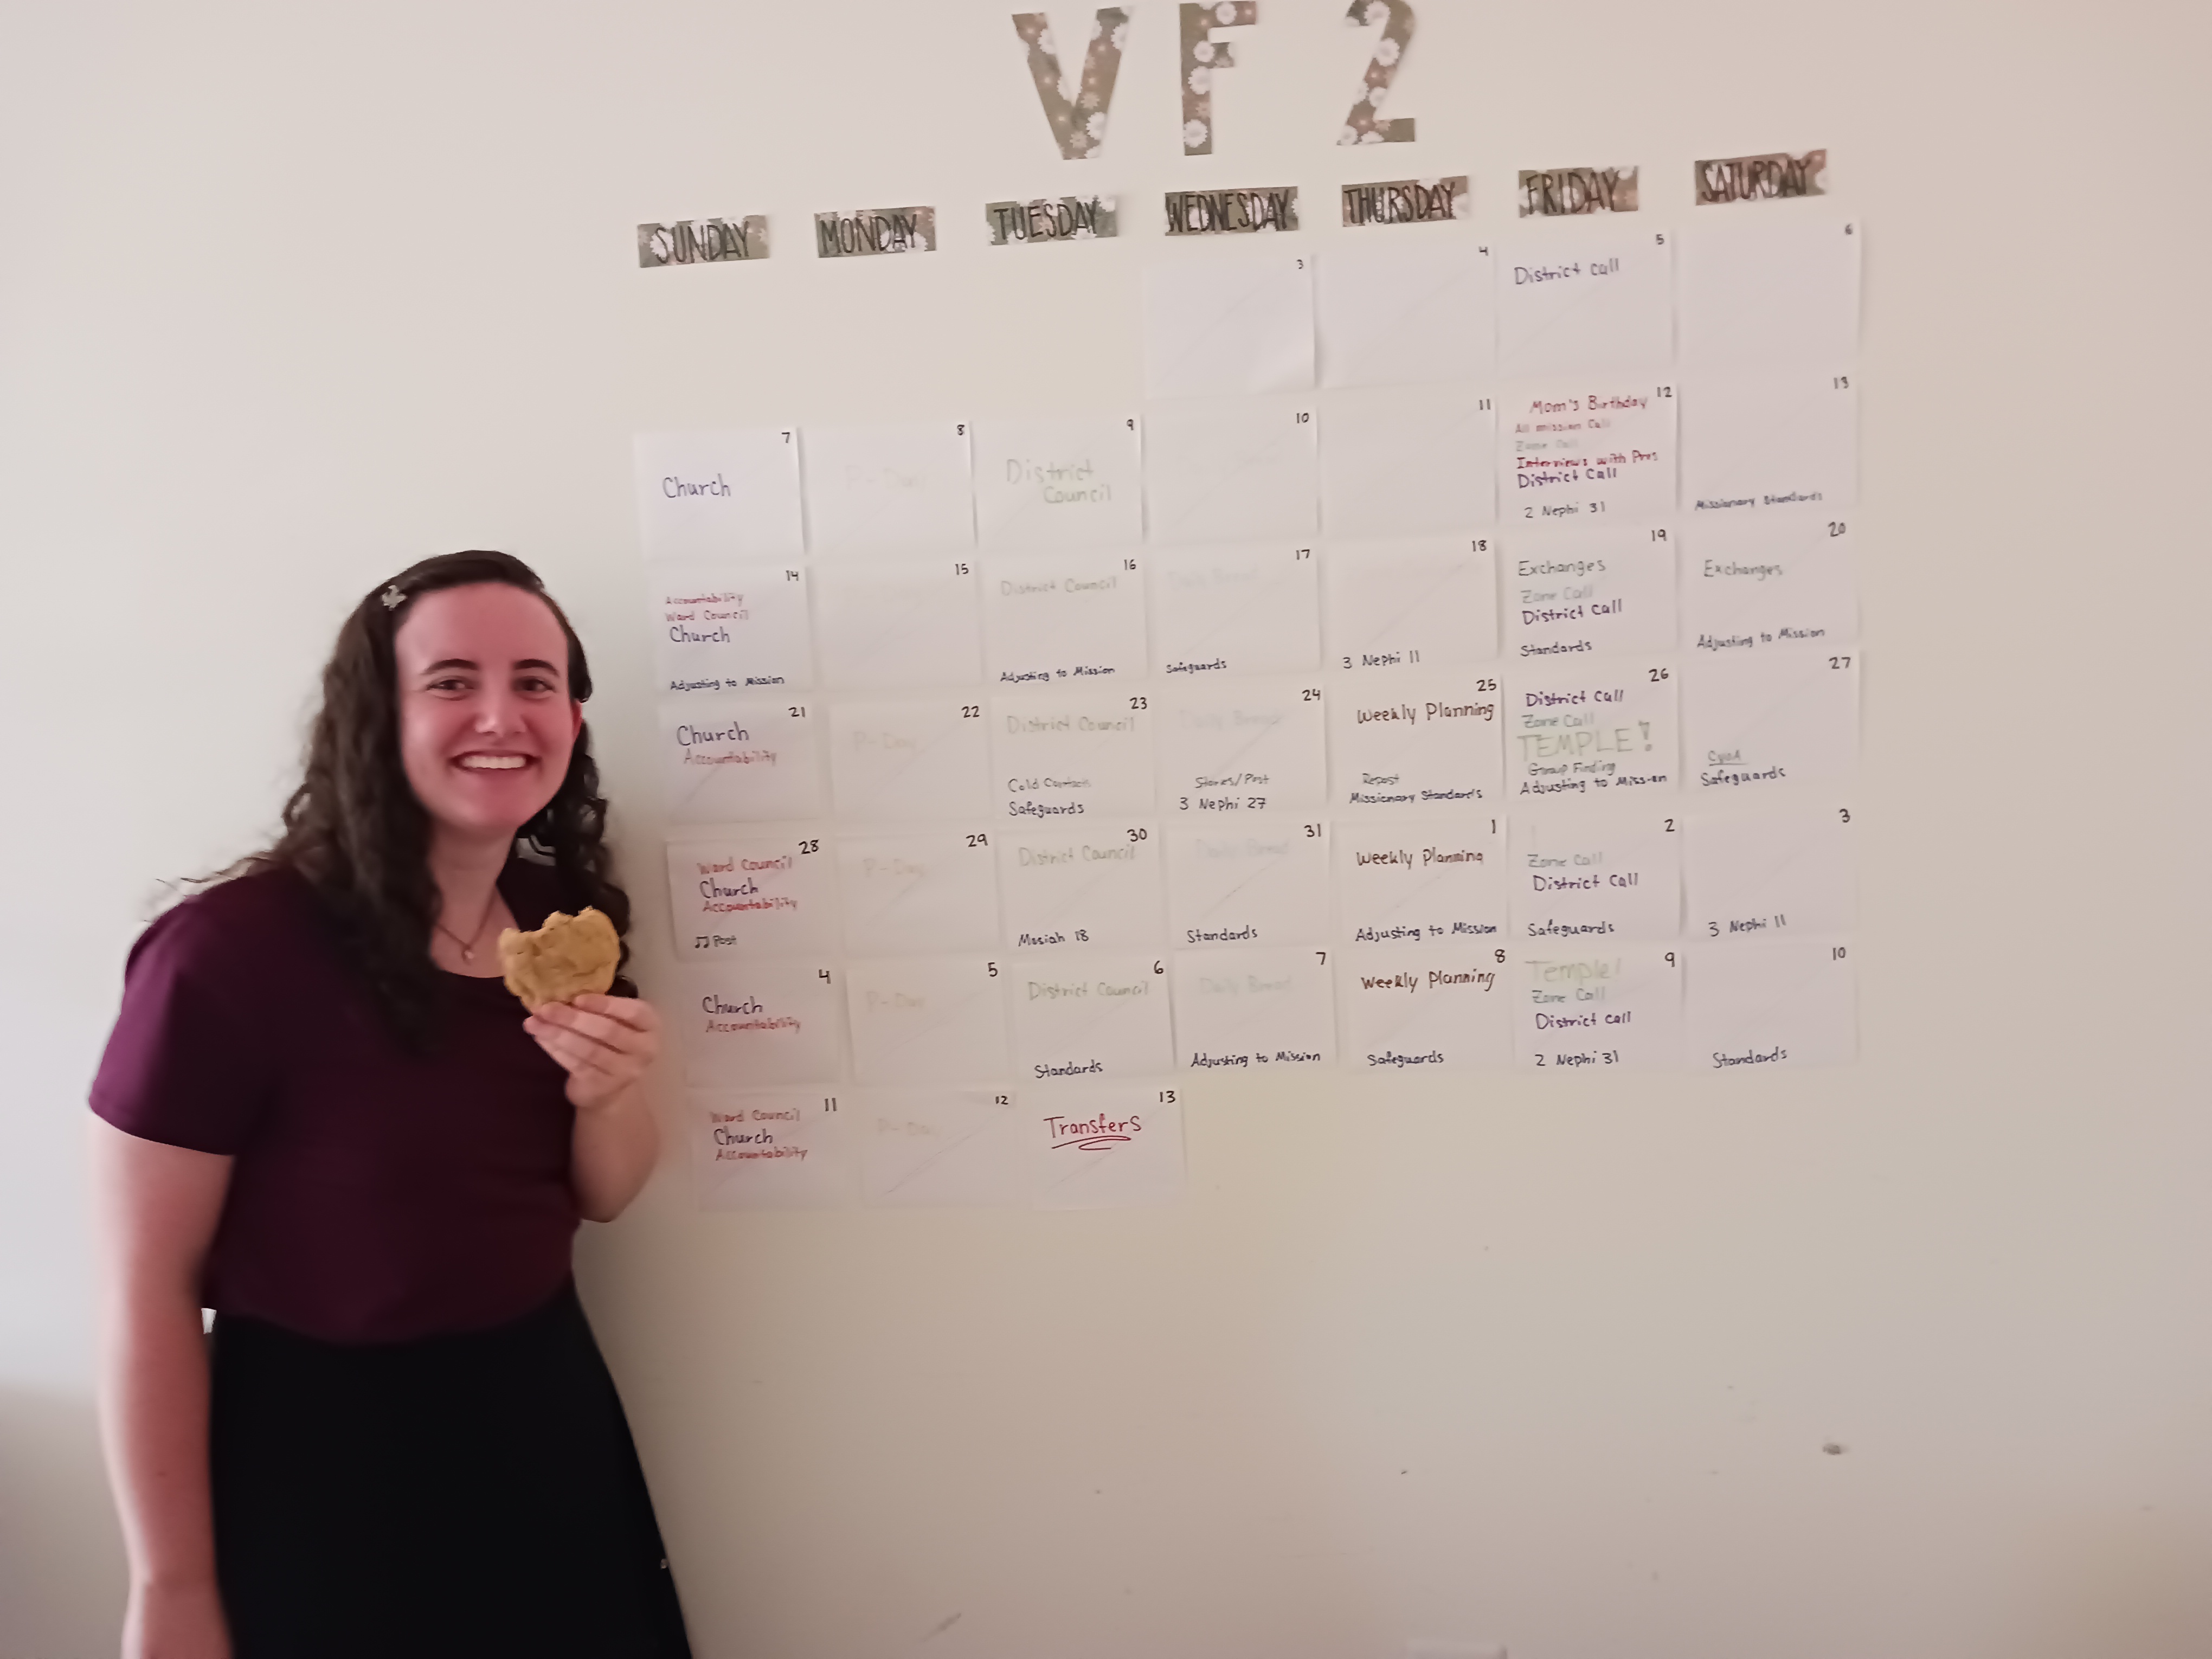 VF 2
SUNDAY MONDAY TUESDAY WEDNESDAY THURSDAY FRIDAY SATURDAY
3
4
5
District Call
6
7
Church
8
P-Day
9
District
Council
10
11
12
Mom's Birthday
All mission Call
Zone Call
Interviews with Pres
District Call
2 Nephi 31
13
Missionary Standards
14
Accountability
Ward Council
Church
Adjusting to Mission
15
16
District Council
Adjusting to Mission
17
Daily Bread
Safeguards
18
3 Nephi 11
19
Exchanges
Zone Call
District Call
Standards
20
Exchanges
Adjusting to Mission
21
Church
Accountability
22
P-Day
23
District Council
Cold Contacts
Safeguards
24
Daily Bread
Stories/Post
3 Nephi 27
25
Weekly Planning
Repost
Missionary Standards
26
District Call
Zone Call
TEMPLE!
Group Finding
Adjusting to Mission
27
Safeguards
28
Ward Council
Church
Accountability
♫ Post
29
P-Day
30
District Council
Mosiah 18
31
Daily Bread
Standards
1
Weekly Planning
Adjusting to Mission
2
Zone Call
District Call
Safeguards
3
3 Nephi 11
4
Church
Accountability
5
P-Day
6
District Council
Standards
7
Daily Bread
Adjusting to Mission
8
Weekly Planning
Safeguards
9
Temple!
Zone Call
District Call
2 Nephi 31
10
Standards
11
Ward Council
Church
Accountability
12
P-Day
13
Transfers